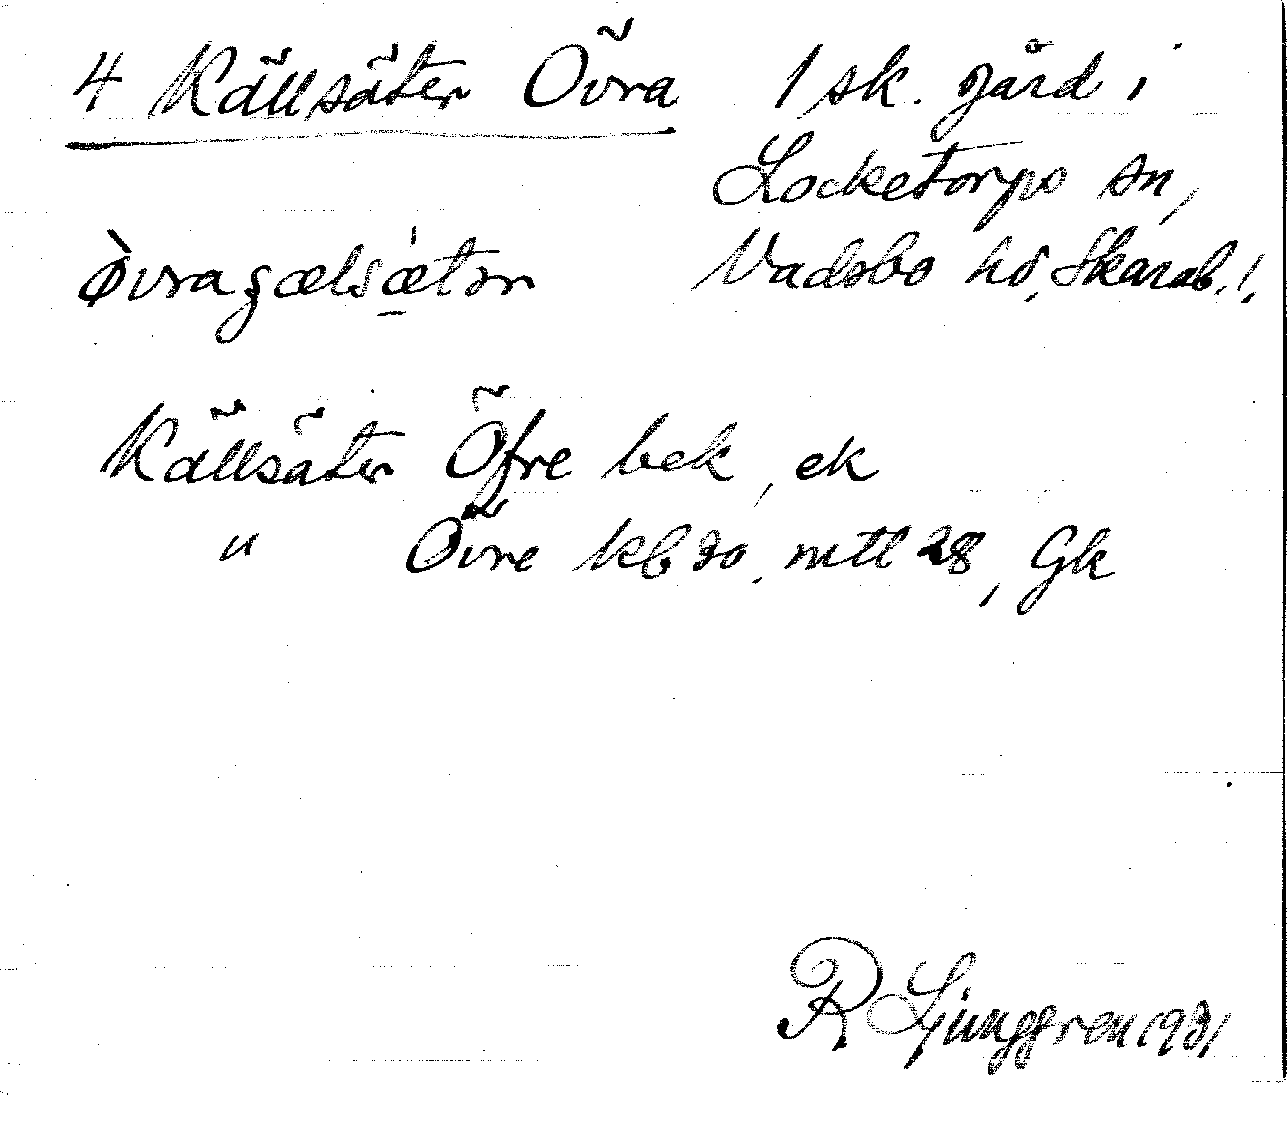 4 Källsäter Övra 1 sk. gård i
Locketorps sn,
Vadsbo hd, Skarab. l.
Källsäter Öfre bek, ek
" Övre kb 30, mtl 28, Gk
R Ljunggren 1931